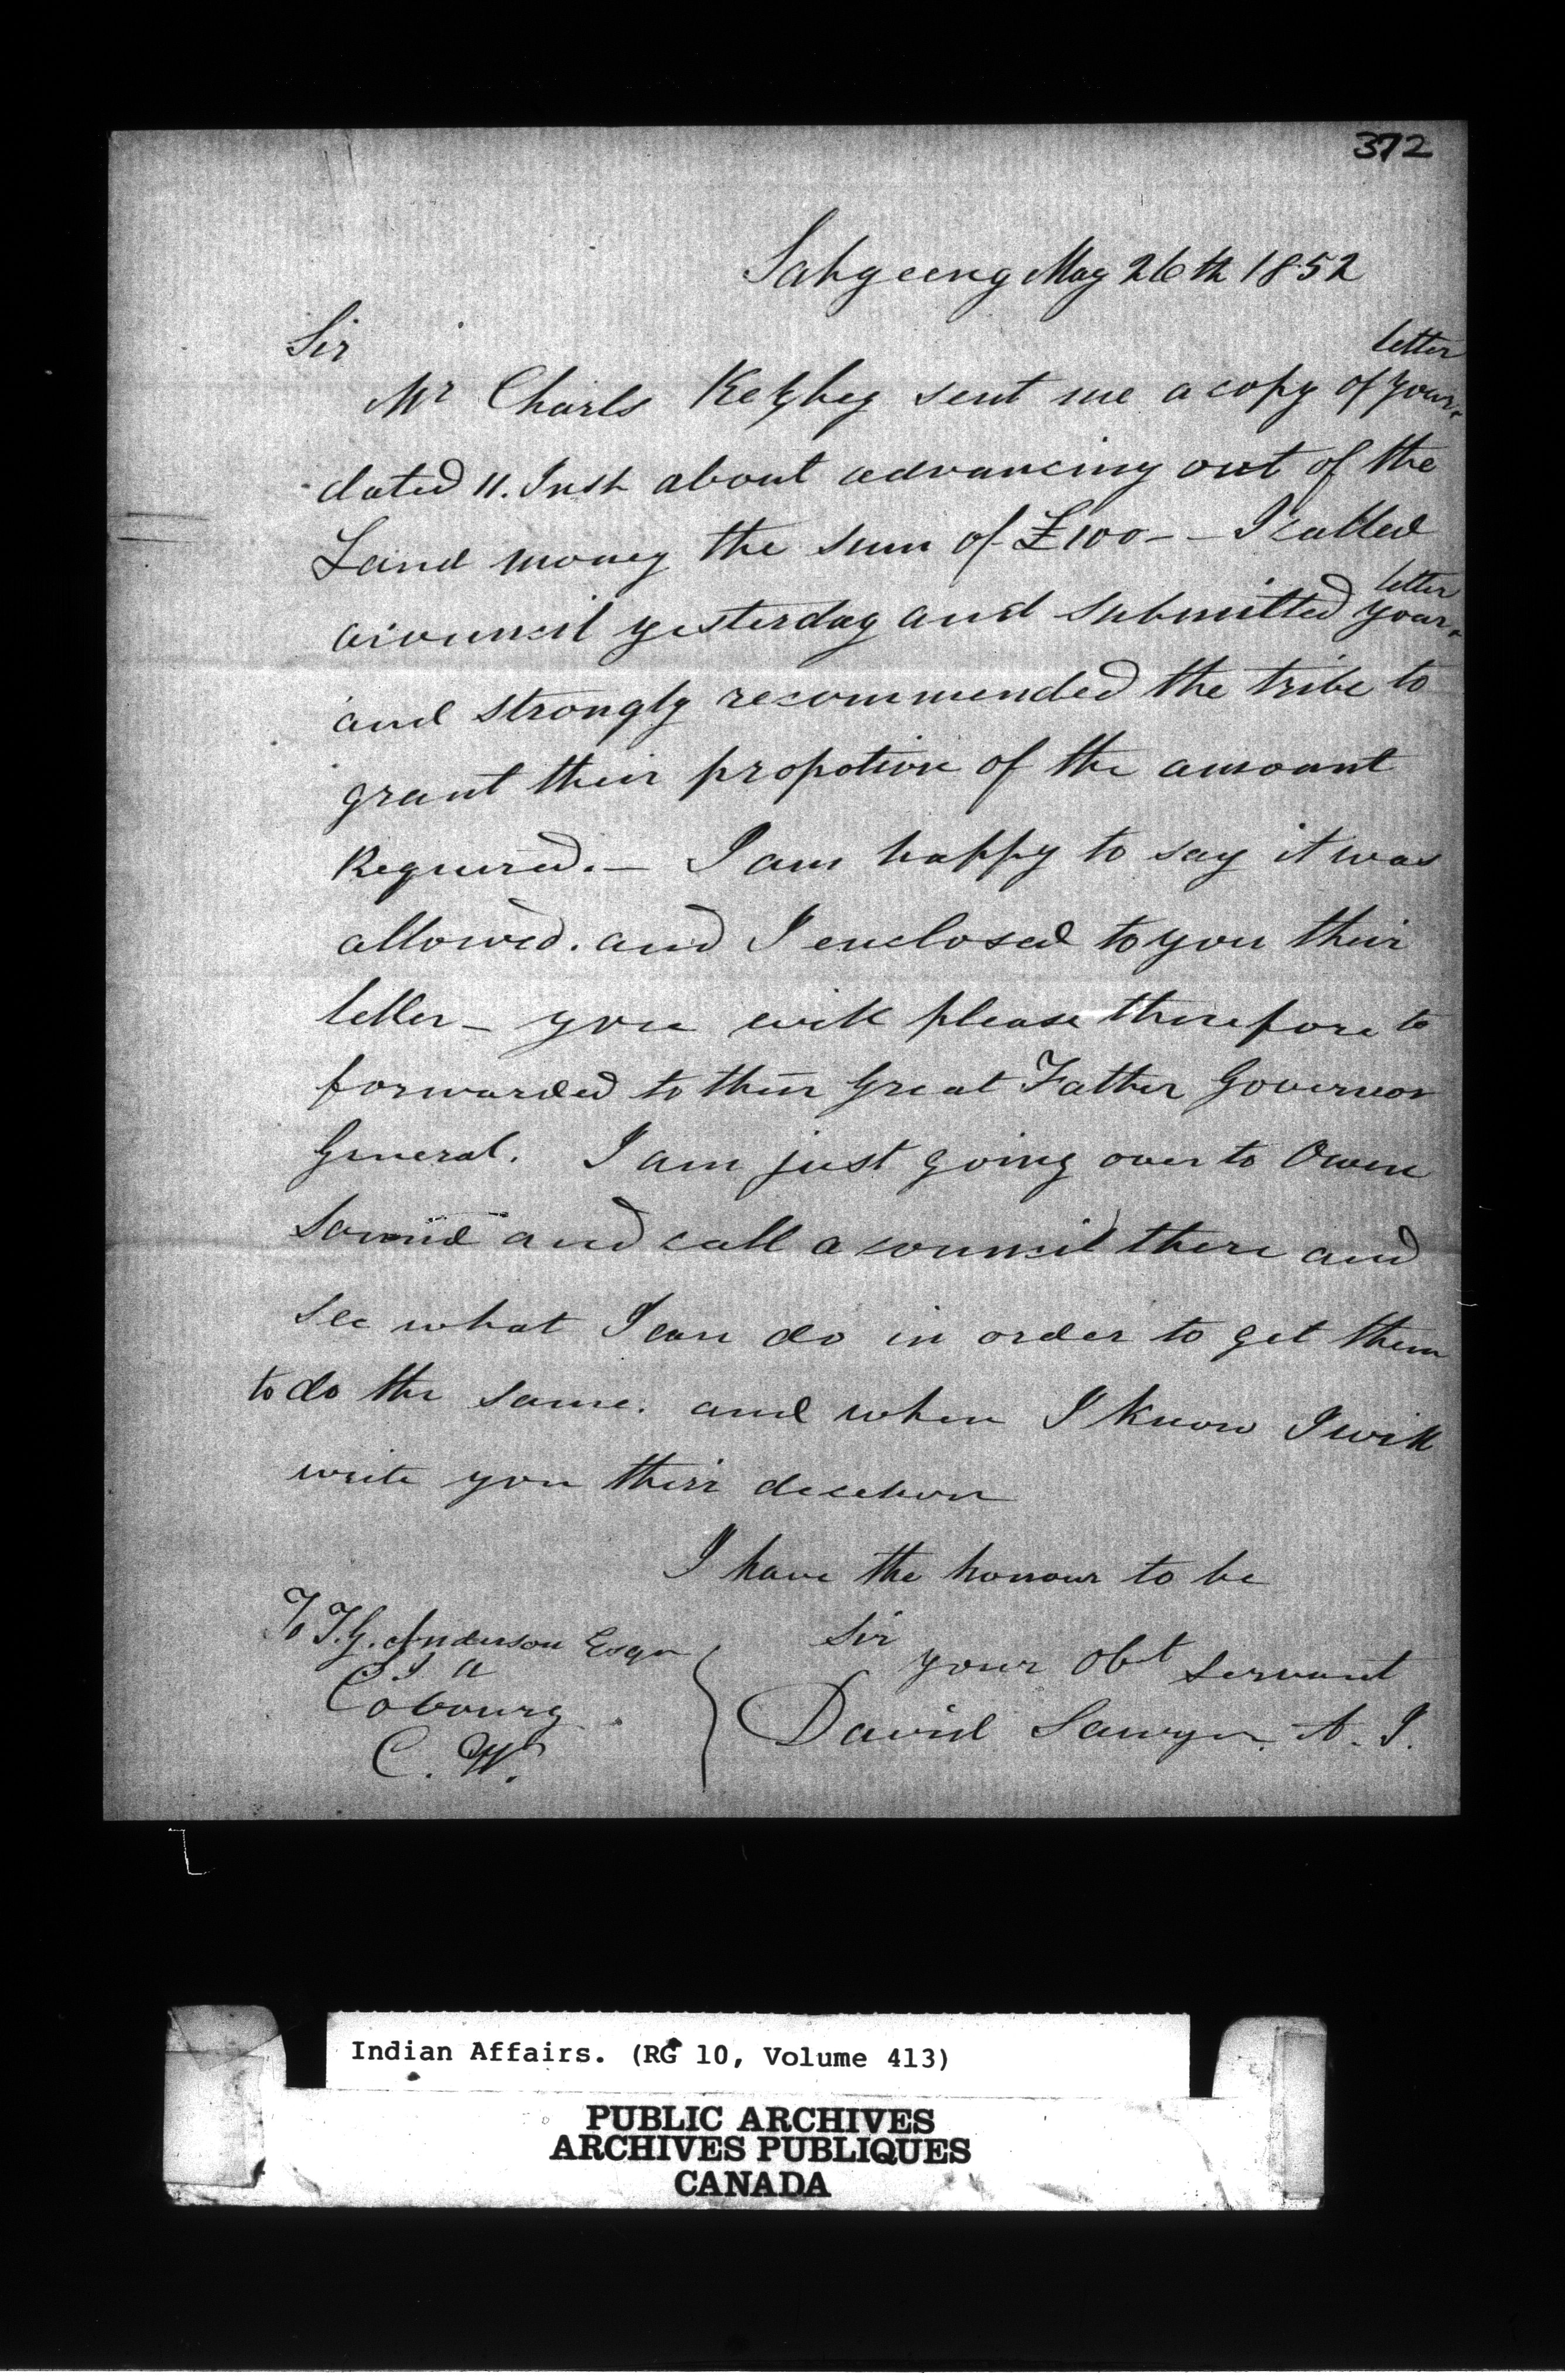 372
Sahgeeng May 26th 1852
Sir
letter
Mr Charls Keeshig sent me a copy of your
dated 11. Inst about advancing out of the
Land money the sum of £100 - - I called
a council yesterday and submitted your letter
and strongly recommended the tribe to
grant their propotion of the amount
Required. — I am happy to say it was
allowed. and I enclosed to you their
letter — you will please therefore to
forwarded to their Great Father Governor
General. I am just going over to Owen
Sound and call a council there and
see what I can do in order to get them
to do the same. and when I know I will
write you their decehon
I have the honour to be
Sir
your Obt servant
David Sawyer. A. I.
To T.G. Anderson Esqr
C I A
Cobourg
C. W.
Indian Affairs. (RG 10, Volume 413)
PUBLIC ARCHIVES
ARCHIVES PUBLIQUES
CANADA